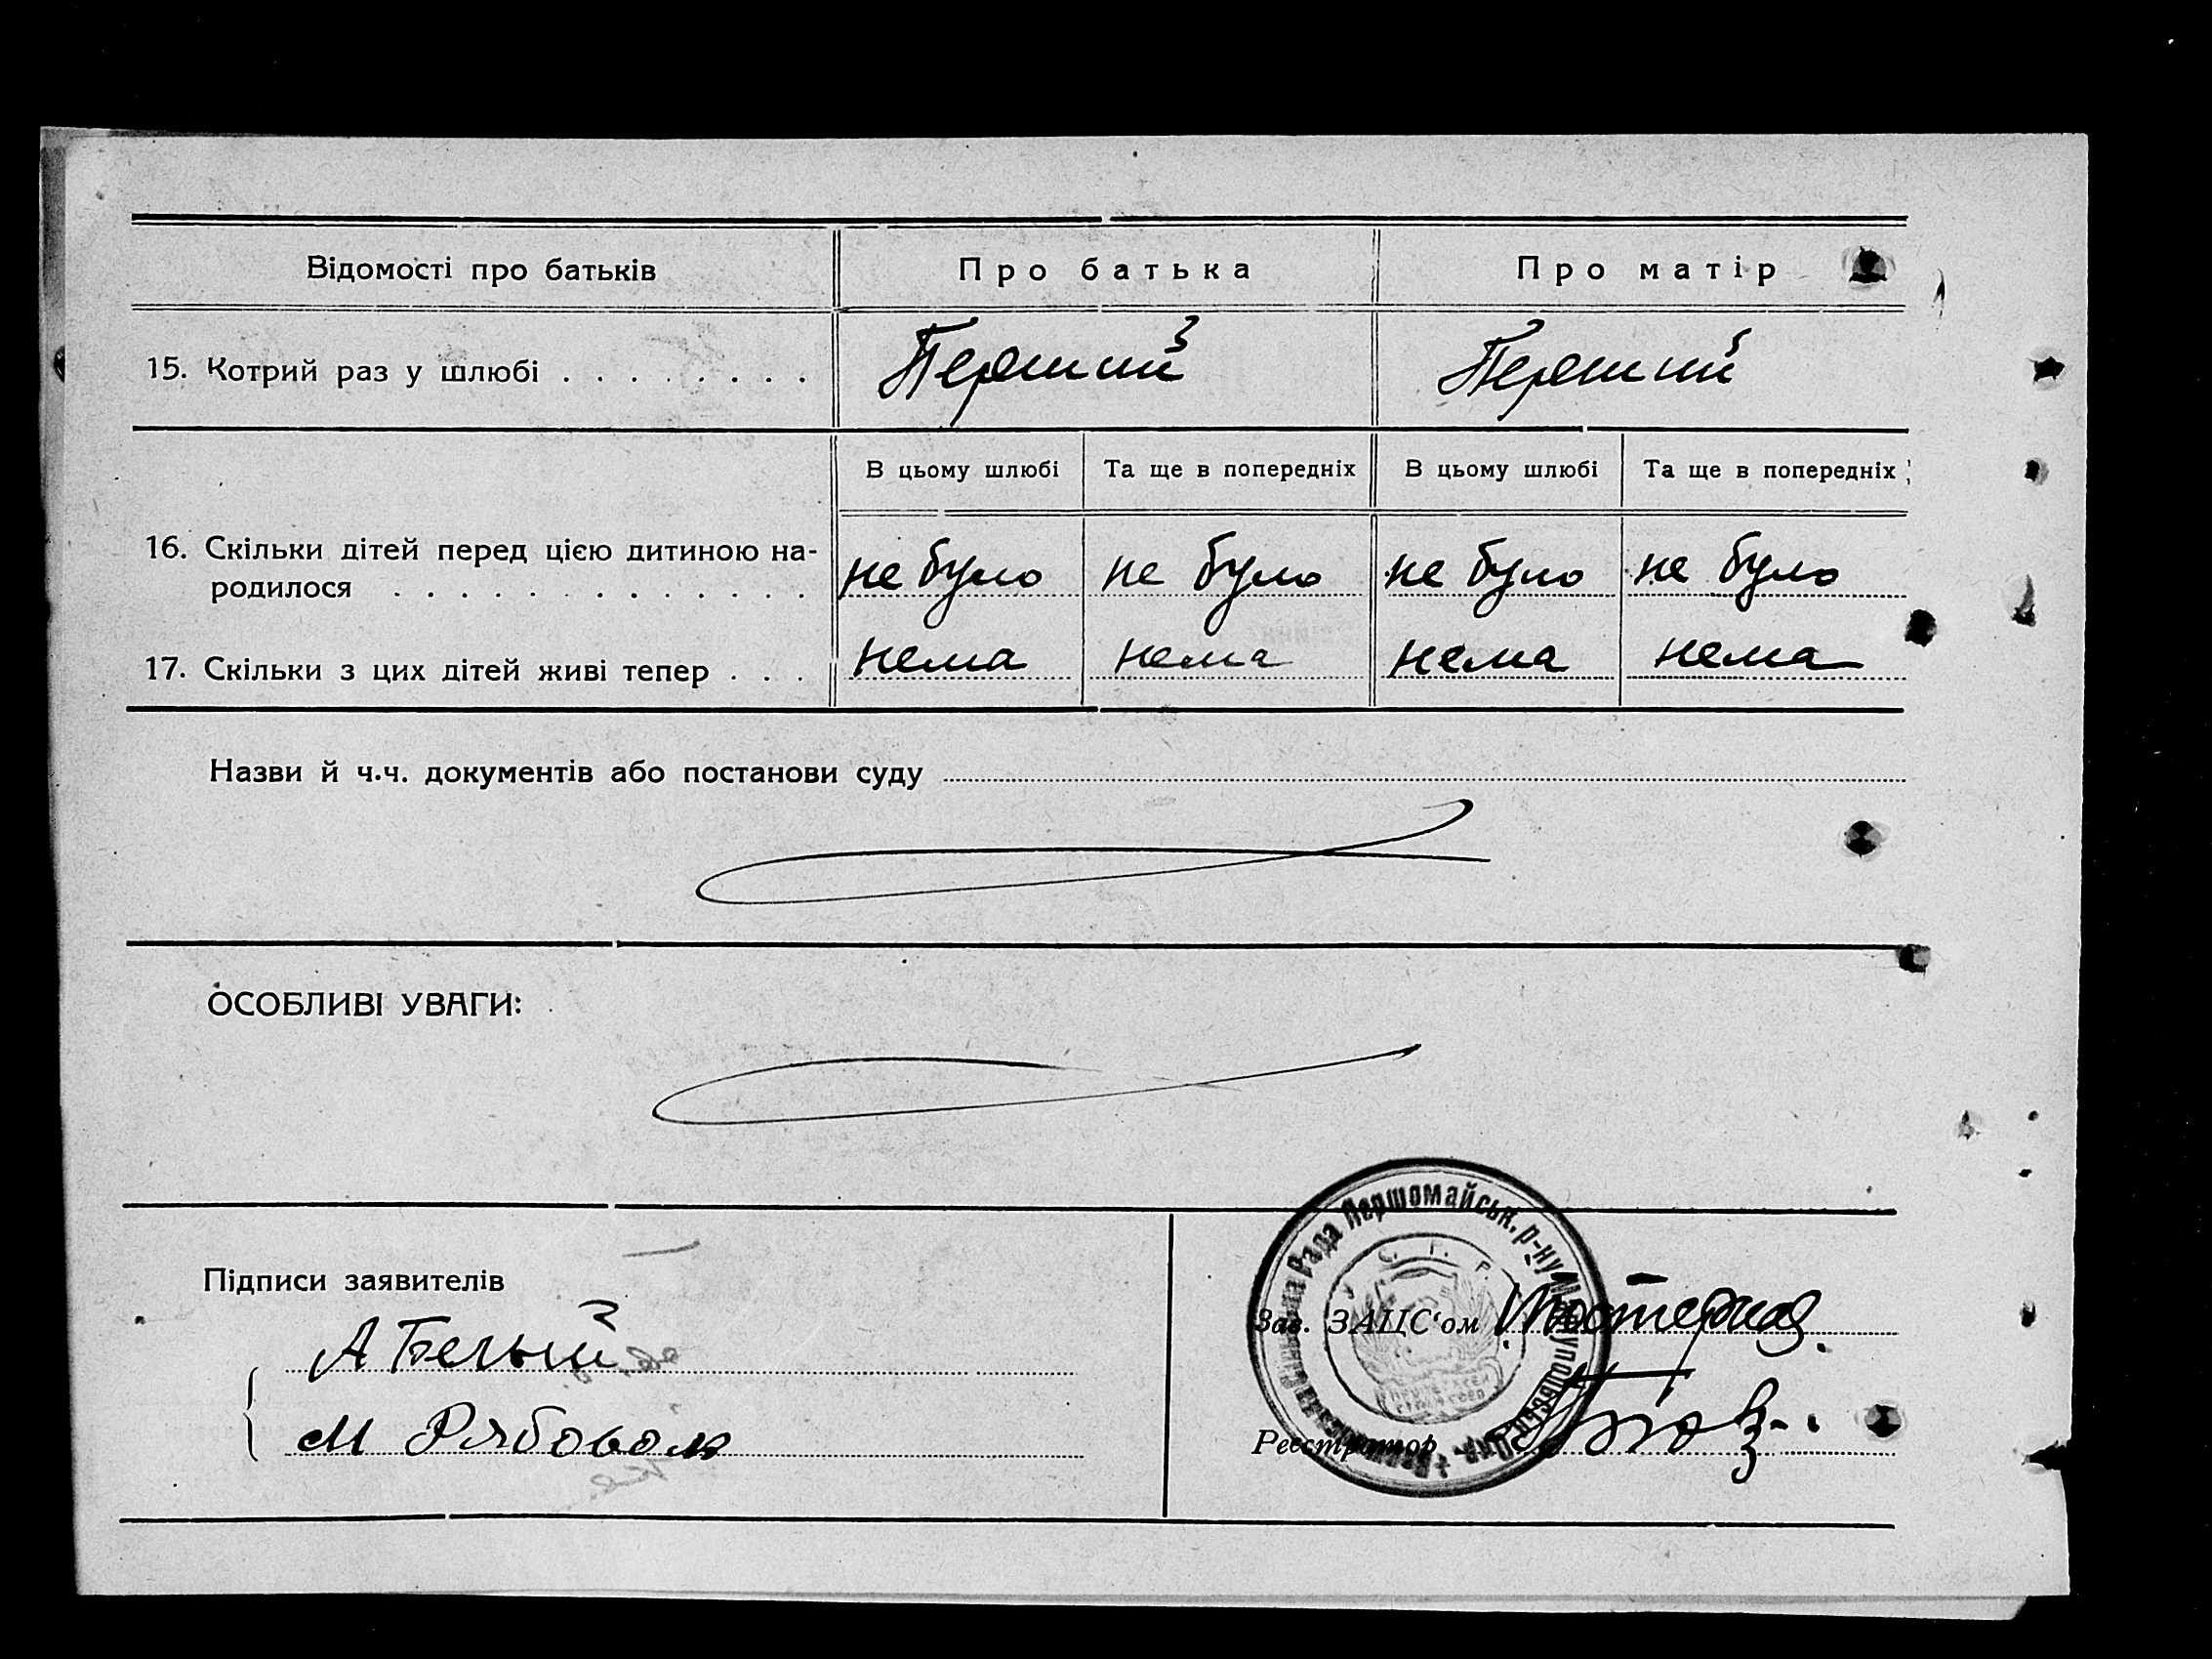 Відомості про батьків Про батька Про матір
15. Котрий раз у шлюбі . . . . . . . . Перший Перший
В цьому шлюбі Та ще в попередніх В цьому шлюбі Та ще в попередніх
16. Скільки дітей перед цією дитиною на-
родилося . . . . . . . . . . . . . не було не було не було не було
17. Скільки з цих дітей живі тепер . . . нема нема нема нема
Назви й ч.ч. документів або постанови суду
ОСОБЛИВІ УВАГИ:
Рада Першомайськ. р-ну
Підписи заявителів
Зав. ЗАЦС'ом
А Белый
Реєстратор
М Рябовол